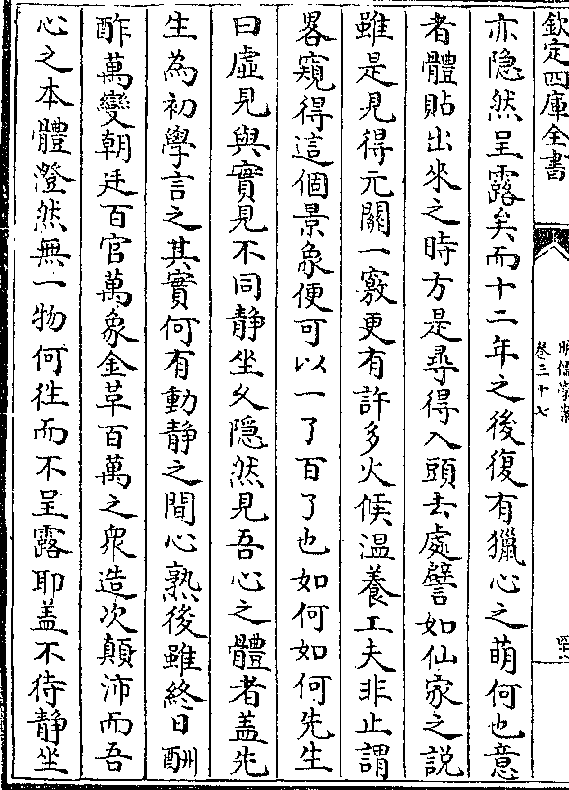 欽定四庫全書
明儒學案
卷三十七
亦隐然呈露矣而十二年之後復有獵心之萌何也意
者體貼出來之時方是尋得入頭去處譬如仙家之說
雖是見得元關一竅更有許多火候温養工夫非止謂
畧窺得這個景象便可以一了百了也如何如何先生
曰虛見與實見不同静坐久隐然見吾心之體者盖先
生為初學言之其實何有動静之間心熟後雖終日酬
酢萬變朝廷百官萬象金革百萬之衆造次顛沛而吾
心之本體澄然無一物何往而不呈露耶盖不待静坐